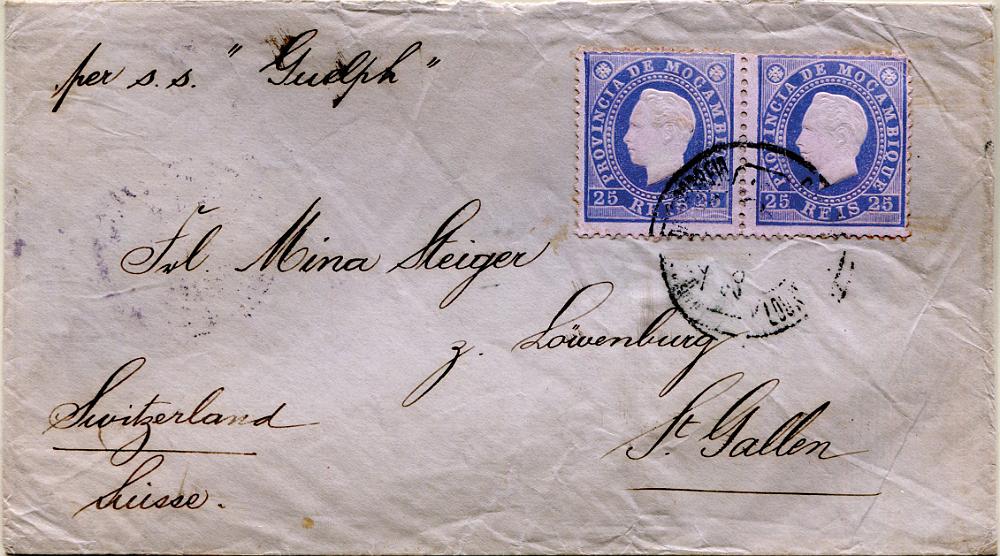 per s.s. "Guelph"
PROVINCIA DE MOÇAMBIQUE
25 REIS 25
PROVINCIA DE MOÇAMBIQUE
25 REIS 25
Frl. Mina Steiger
z. Löwenburg
St Gallen
Switzerland
Suisse.